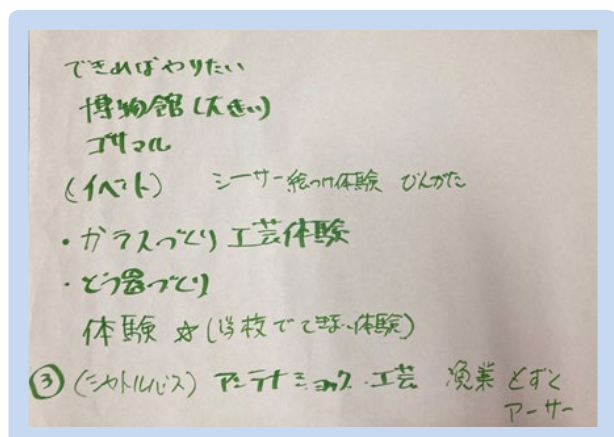 できればやりたい
博物館(大きい)
ゴサマル
(イベント) シーサー絵つけ体験 びんがた
・ガラスづくり 工芸体験
・とう器づくり
体験 ☆(学校でできない体験)
③(シャトルバス) アンテナショップ・工芸 漁業 とずく
アーサー